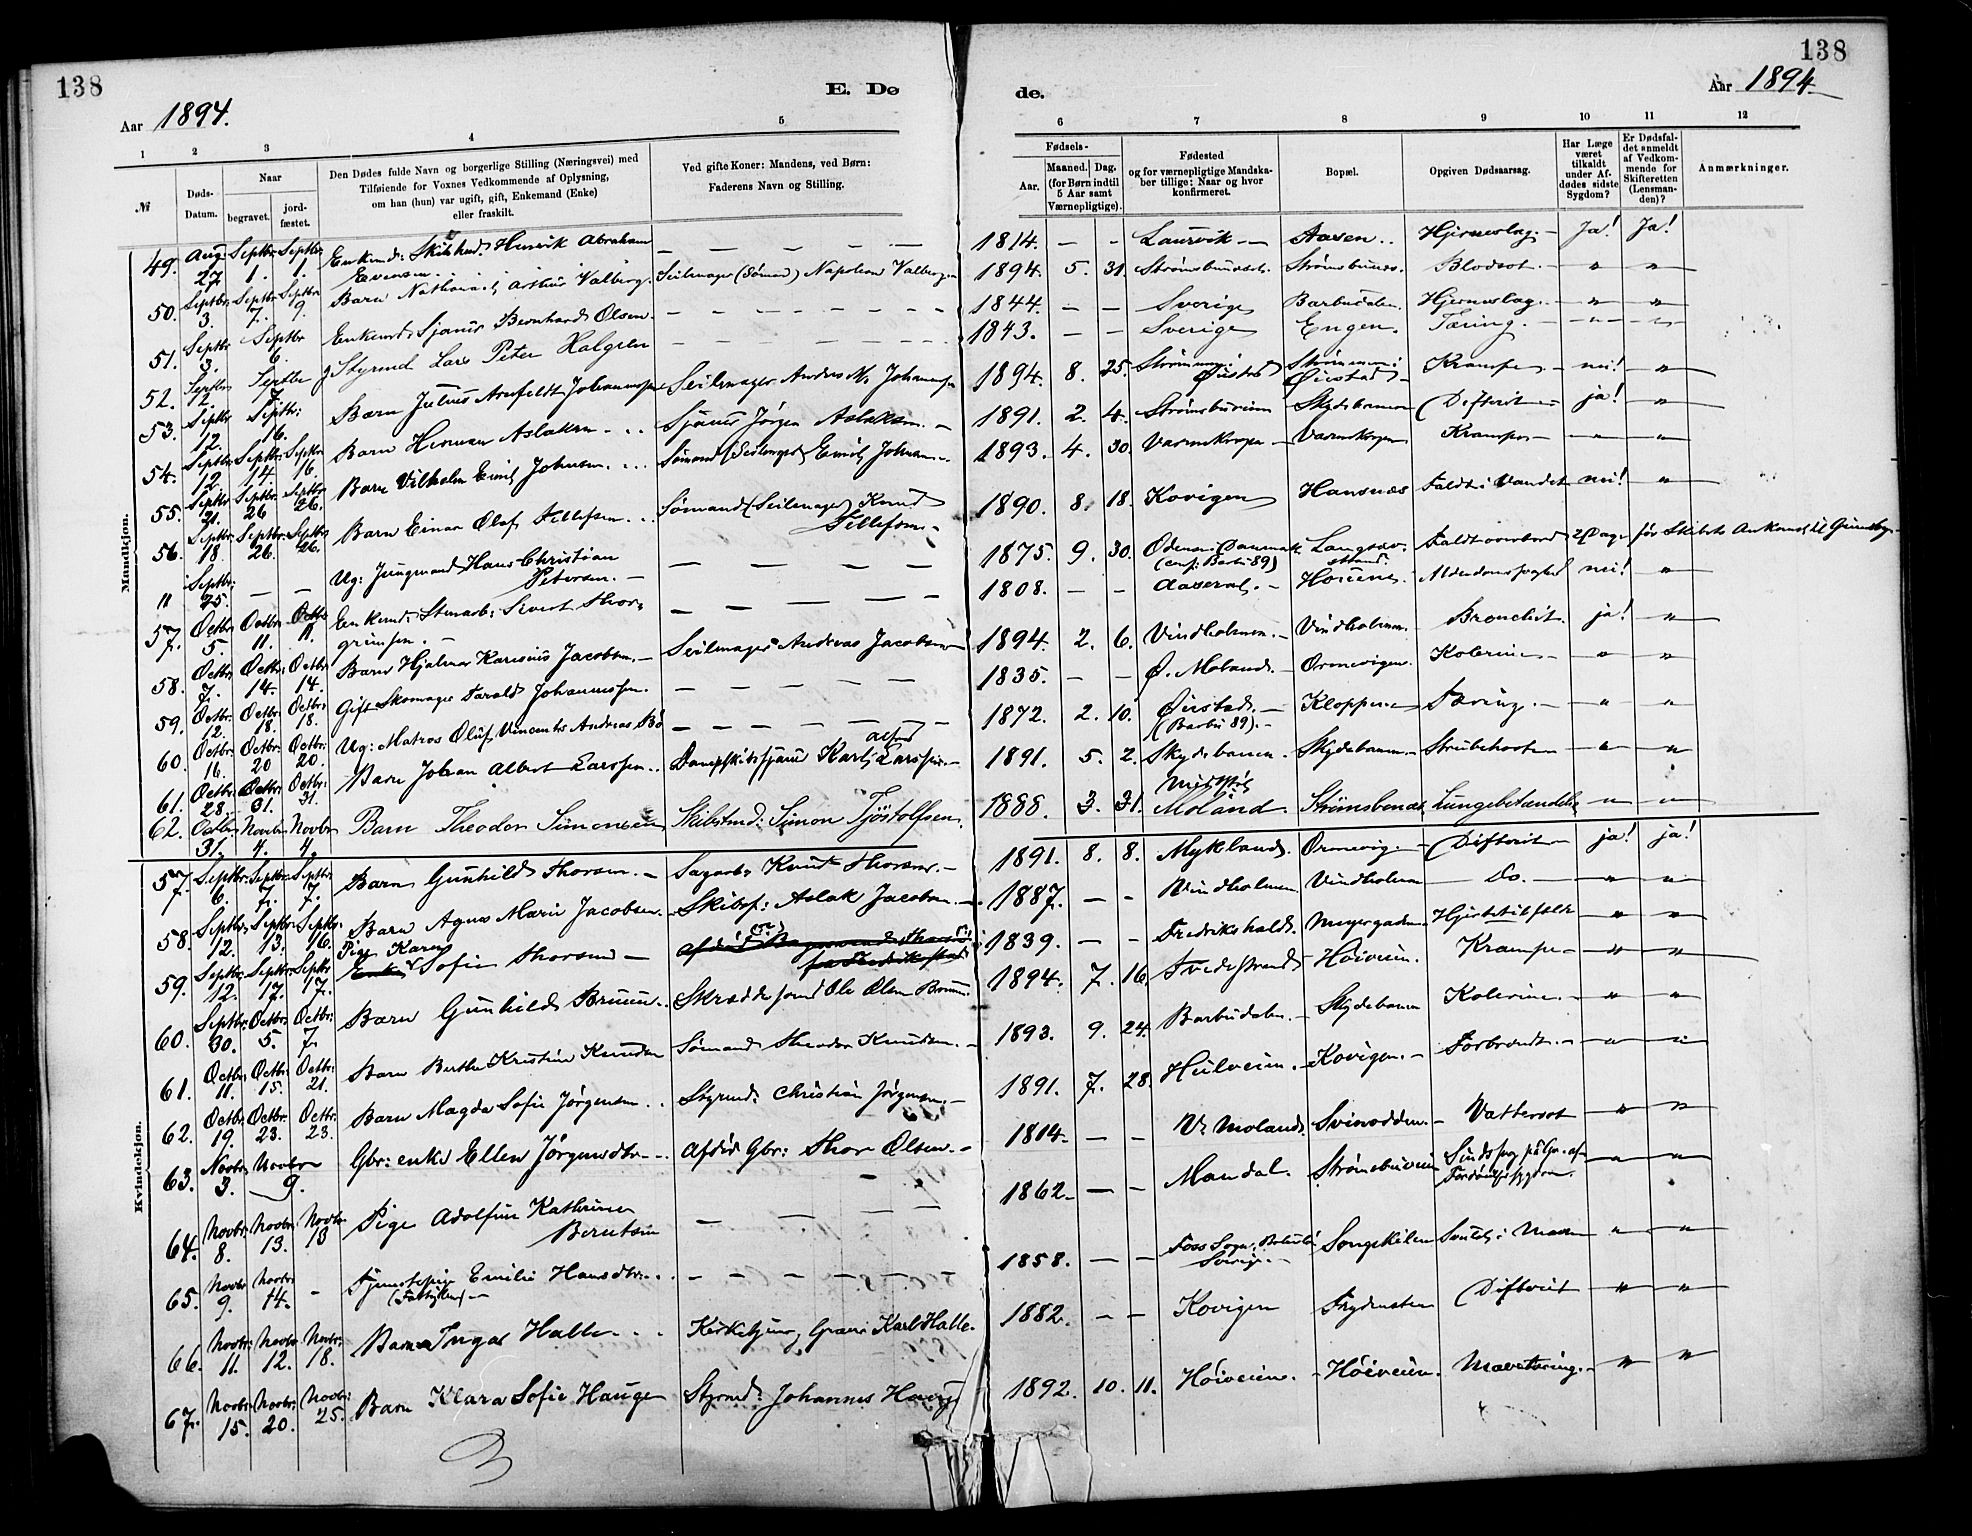 138
138
Aar 1894.
E. Dø
de.
Aar 1894.
1 2 3 4 5 6 7 8 9 10 11 12
№
Døds-
Datum.
Naar
begravet.
jord-
fæstet.
Den Dødes fulde Navn og borgerlige Stilling (Næringsvei) med
Tilføiende for Voxnes Vedkommende af Oplysning,
om han (hun) var ugift, gift, Enkemand (Enke)
eller fraskilt.
Ved gifte Koner: Mandens, ved Børn:
Faderens Navn og Stilling.
Fødsels-
Aar.
Maaned. Dag.
(for Børn indtil
5 Aar samt
Værnepligtige).
Fødested
og for værnepligtige Mandska-
ber tillige: Naar og hvor
konfirmeret.
Bopæl.
Opgiven Dødsaarsag.
Har Læge
været
tilkaldt
under Af-
dødes sidste
Sygdom?
Er Dødsfal-
det anmeldt
af Vedkom-
mende for
Skifteretten
(Lensman-
den)?
Anmærkninger.
Mandkjøn.
49. Aug. 27 Septbr. 1. Septbr. 1. Henrik Abraham Evensen. — 1814. — - Laurvik - Aasen .. Hjerneslag. - Ja! Ja!
50. Septbr. 3. Septbr. 7. Septbr. 9. Barn Nathanael Arthur Valberg. Seilmager (Sømand) Napoleon Valberg. 1894. 5. 31. Strømsbunæset. Strømsbunæs. Blodsot. - " "
51. Septbr. 3. Septbr. 6. Enkemd: Bernhard Olsen. — 1844. — - Sverige Barbudalen. Hjerneslag. - " "
52. Septbr. 12. Septbr 7. Styrmd Lars Peter Halgren — 1843. — - Sverige Engen. Tæring. - " "
53. Septbr 12. Septbr: 16. Barn Julius Arnfeldt Johannessen Seilmager Andreas M. Johannessen 1894. 8. 25. Øiestad Øiestad Krampe. - nei! "
54. Septbr. 12 Septbr. 14. Septbr. 16 Barn Herman Aslaksen . . . Jørgen Aslaksen. - 1891. 2. 4. Strømsbuveien Skydebanen Difterit - ja! "
55. Septbr. 21. Septbr. 26 Septbr. 26. Barn Vilhelm Emil Johnsen. . . Sømand Emil Johnsen 1893. 4. 30. Varmekrogen - Varmekrogen Krampe - " "
56. Septbr. 18 Septbr. 26. Septbr. 26. Barn Einar Olaf Tellefsen. .. Sømand (Seilmager) Knud Tellefsen. - 1890. 8. 18. Kovigen Hansnæs Faldt i Vandet nei! "
11 Septbr: 25. — — Ug: Jungmand Hans Christian Petersen. - — 1875. 9. 30. Odense. Danmark (conf: Barbu 89) Langsæv strand. Faldt overbord 2 Dage før Skibets Ankomst til Grimsby. -
57. Octbr 5. Octbr. 11. Octbr. 11. Enkemd: Sivert Thorgrimsen. - — 1808. — - Aaseral. - Høiene. - nei! "
58. Octbr. 7. Octbr. 14. Octbr. 14. Barn Hjalmar Karenius Jacobsen. - Seilmager Andreas Jacobsen 1894. 2. 6. Vindholmen. - Vindholmen. Bronchit. ja! "
59. Octbr. 12. Octbr. 18. Octbr: 18. Gift Skomager Tarald Johannessen. — 1835. — - Ø. Moland. - Ormevigen. Kolerine - " "
60. Octbr. 16. Octbr. 20 Octbr. 20. Ug: Matros Oluf Vincents Andreas Bø — 1872. 2. 10. Øiestad. - (Barbu 89). - Kloppene Tæring. - " "
61. Octbr. 28. Octbr. 31. Octbr: 31. Barn Johan Albert Larssen. . Karl Alfred Larssen. - 1891. 5. 2. Skydebanen. Skydebanen. - Strubehoste " "
62. Octbr. 31. Novbr 4. Novbr 4. Barn Theodor Simonsen Skibstmd: Simon Tjöstolfsen. 1888. 3. 31. Moland. Strømsbonæs. Lungebetændelse " "
Kvindekjøn.
57. Septbr. 6. Septbr. 7. Septbr. 7. Barn Gunhild Thorsen. - Sagarb: Knut Thorsen. - 1891. 8. 8. Mykland. Ormevig. - Difterit - ja! ja!
58. Septbr. 12. Septbr. 13. Septbr. 16. Barn Agnes Marie Jacobsen. Skibsf: Aslak Jacobsen. - 1887. — - Vindholmen Vindholmen — Do. — " "
59. Septbr. 12. Septbr. 17. Septbr 17. Pige Karen Sofie Thorsen — 1839. — - Fredrikshald. Hjertetilfælde " "
60. Septbr. 30. Octbr: 5. Octbr: 7. Barn Gunhild Bruun. . Ole Olsen Bruun. 1894. 7. 16. Tvedestrand Høiveien. Krampe - " "
61. Octbr: 11. Octbr. 15. Octbr: 21. Barn Berthe Kristine Knudsen Sømand Theodor Knudsen. - 1893. 9. 24. Barbudalen. - Skydebanen Kolerine. - " "
62. Octbr. 19. Octbr. 23. Octbr. 23. Barn Magda Sofie Jørgensen . . Styrmd: Christian Jørgensen. - 1891. 7. 28. Hiilveien. Kovigen. - Forbrændt. - " "
63. Novbr. 3. Novbr. 9. Gbr: enke Ellen Jørgensdtr. - - Afdøde Gbr: Thor Olsen. - 1814. — - V. Moland. Svinodden. - Vattersot " "
64. Novbr. 8. Novbr. 13. Novbr 13 Pige Adolfine Kathrine Berntsen — 1862. — - Mandal. Strømsbuveien " "
65. Novbr 9. Novbr 14. - Tjenestepige Emilie Hansdtr. . . — 1858. — - Foss Sogn, Sverige. - Songekilen " "
66. Novbr: 11. Novbr. 12. Novbr: 18. Barn Inga Halle. . . Karl Halle. 1882. — - Kovigen Frydensten Difterit " "
67. Novbr: 15. Novbr: 20. Novbr: 25. Barn Klara Sofie Hauge Styrmd: Johannes Hauge 1892. 10. 11. Høiveien. - Høiveien. Mavetæring. - " "